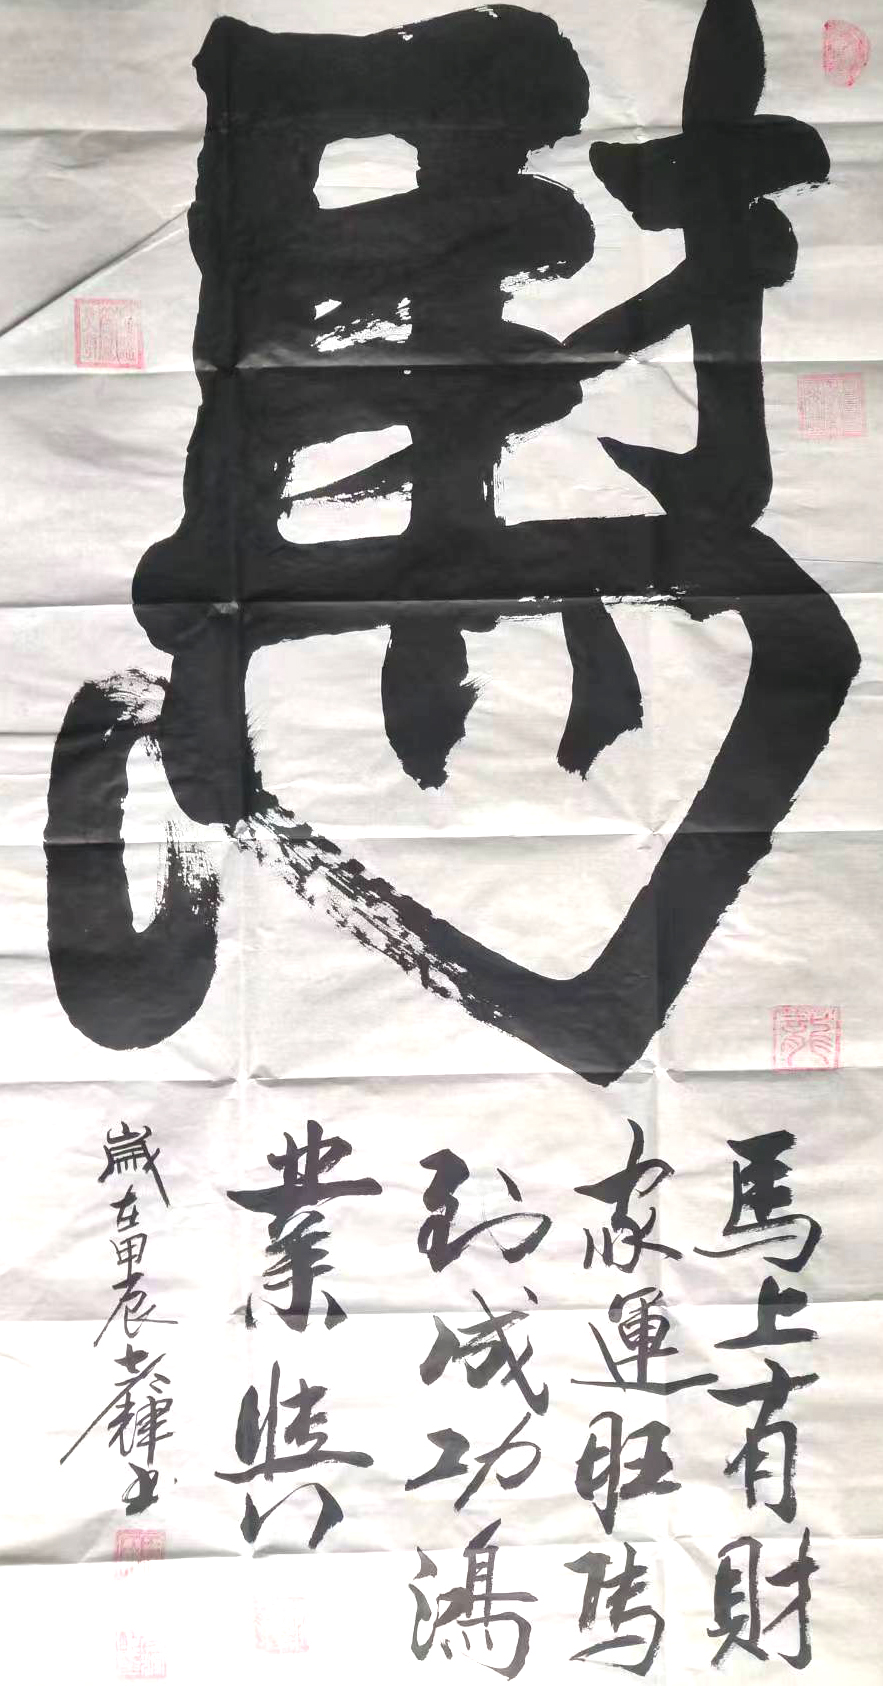 馬上有財
家運旺馬
到成功鴻
業興
歲在甲辰輝书
龍